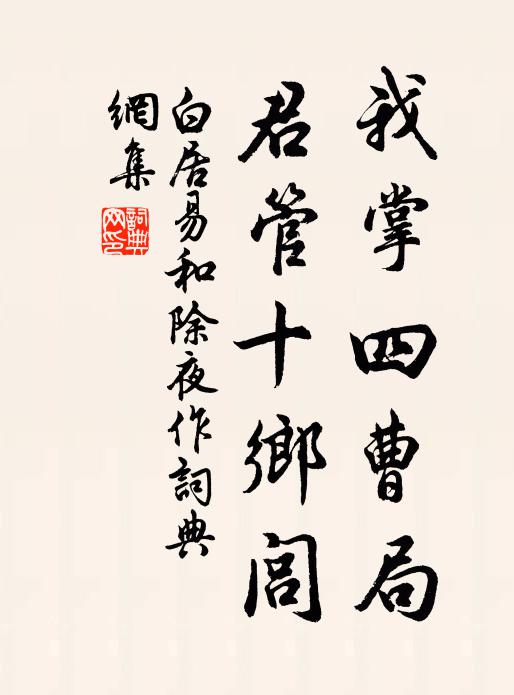 我掌四曹局
君管十鄉閭
白居易和除夜作詞典
網集
詞典网印